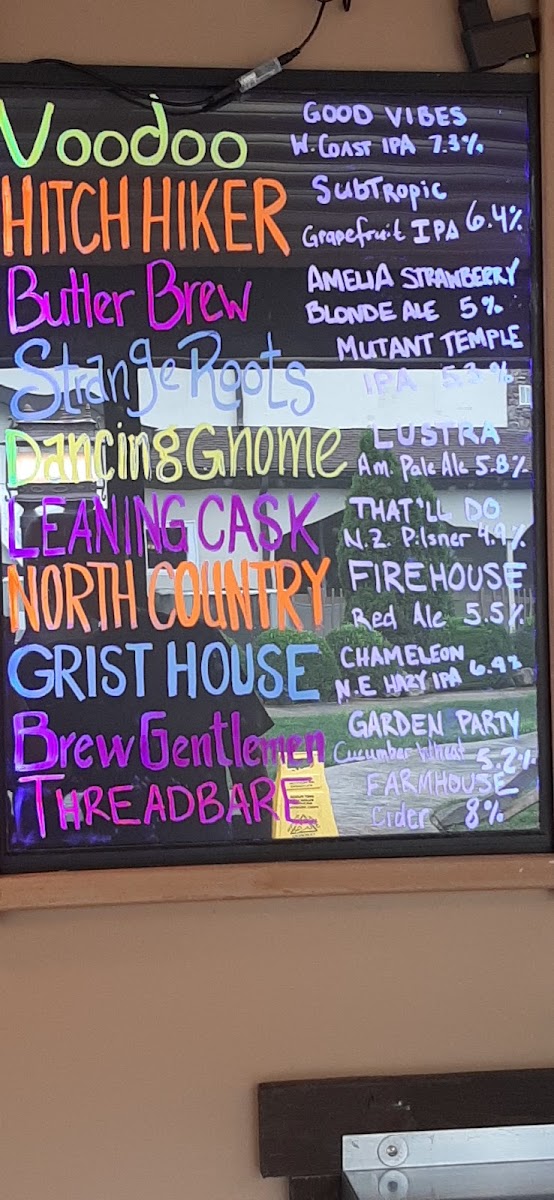 Voodoo
GOOD VIBES
W. COAST IPA 7.3%
HITCH HIKER
SubTropic
Grapefruit IPA 6.4%
Butler Brew
AMELIA STRAWBERRY
BLONDE ALE 5%
Strange Roots
MUTANT TEMPLE
IPA 5.3%
Dancing Gnome
LUSTRA
Am. Pale Ale 5.8%
LEANING CASK
THAT'LL DO
N.Z. Pilsner 4.9%
NORTH COUNTRY
FIREHOUSE
Red Ale 5.5%
GRIST HOUSE
CHAMELEON
N.E HAZY IPA 6.9%
Brew Gentlemen
GARDEN PARTY
Cucumber Wheat 5.2%
THREADBARE
FARMHOUSE
Cider 8%